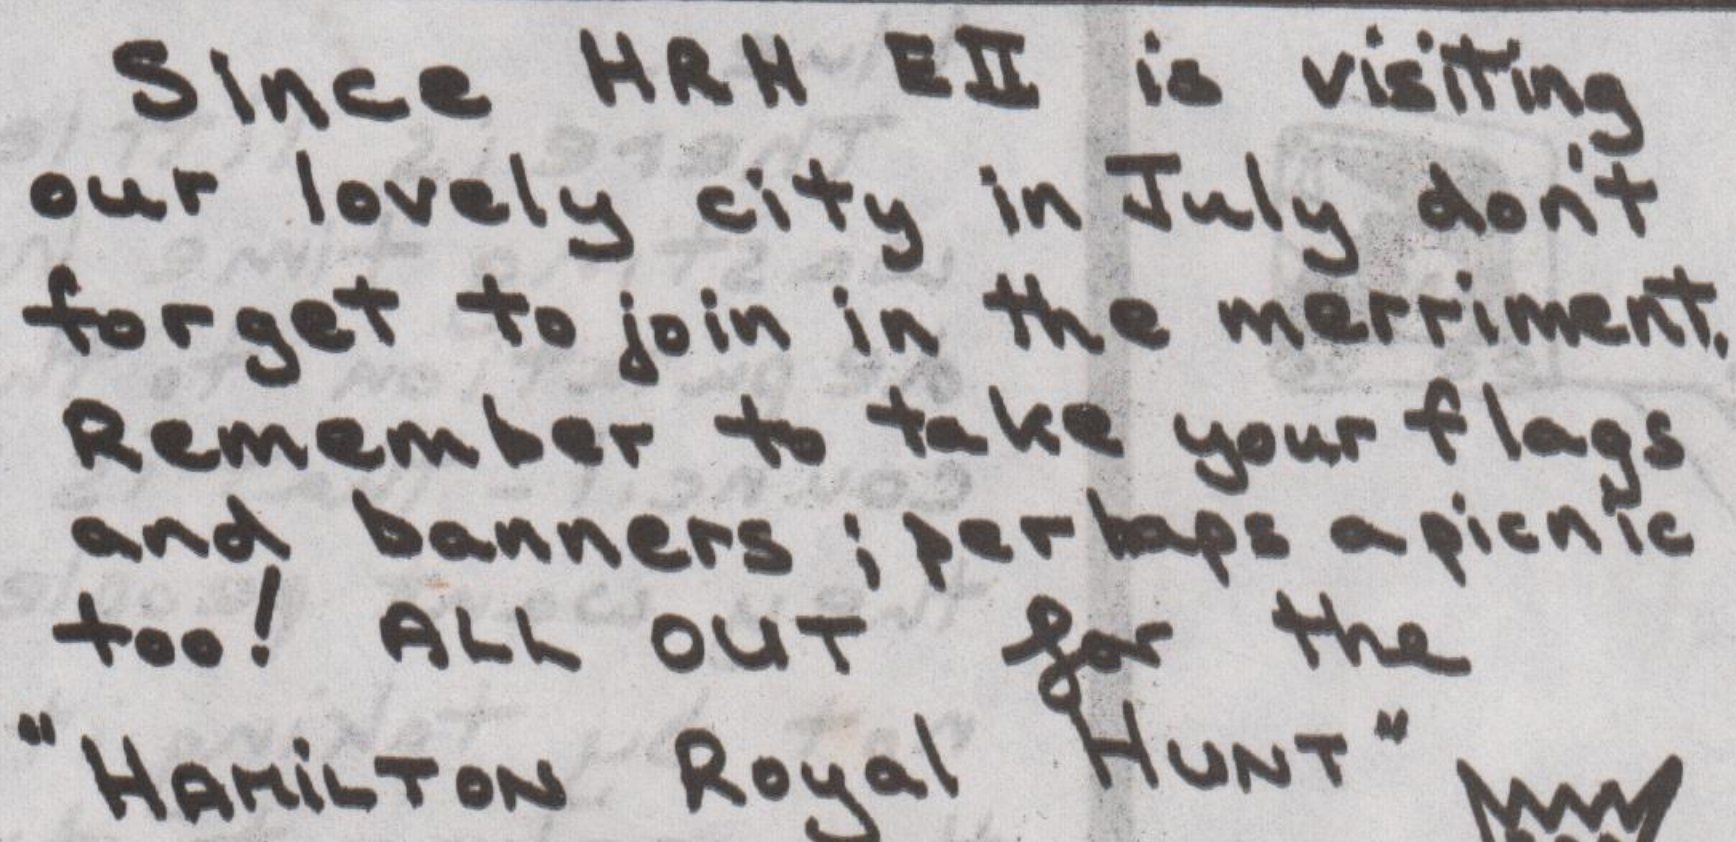 Since HRH EII is visiting
our lovely city in July don't
forget to join in the merriment.
Remember to take your flags
and banners ; perhaps a picnic
too! ALL OUT for the
"HAMILTON Royal HUNT"